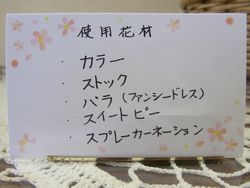 使用花材
・カラー
・ストック
・バラ（ファンシードレス）
・スイートピー
・スプレーカーネーション